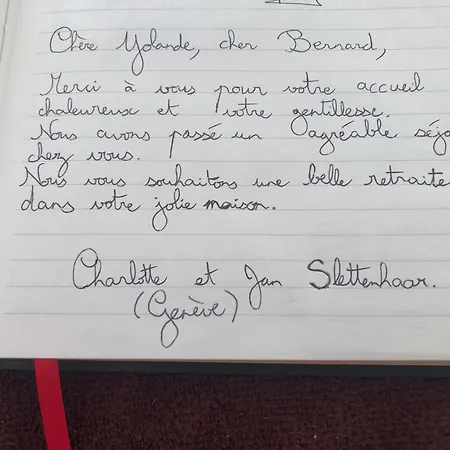 Chère Yolande, cher Bernard,
Merci à vous pour votre accueil
chaleureux et votre gentillesse.
Nous avons passé un agréable séjo
chez vous.
Nous vous souhaitons une belle retraite
dans votre jolie maison.
Charlotte et Jan Slettenhaar.
(Genève)